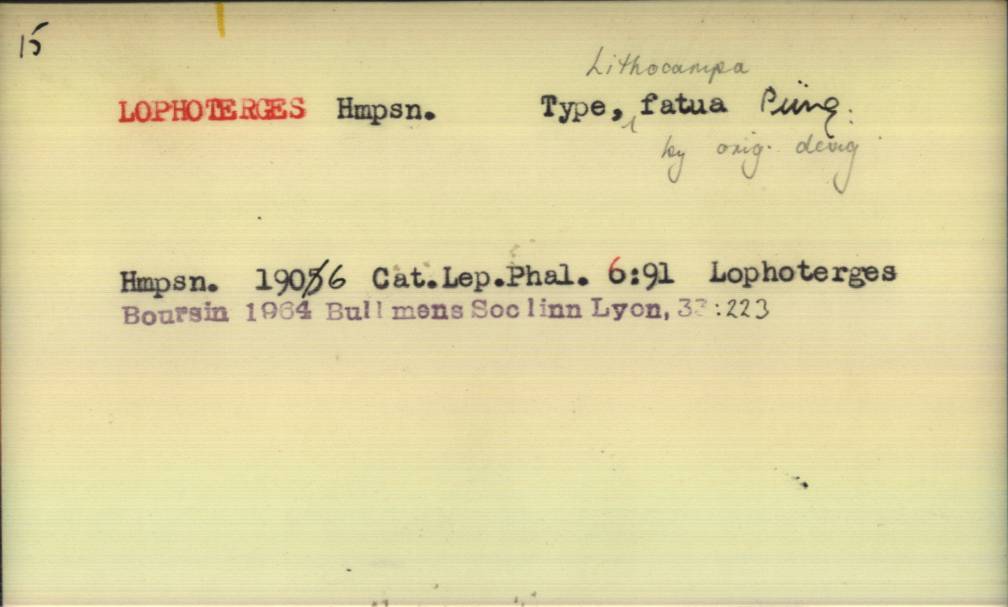 15
Lithocampa
LOPHOTERGES Hmpsn. Type, fatua Püng.
by orig. desig
Hmpsn. 1906 Cat.Lep.Phal. 6:91 Lophoterges
Boursin 1964 Bull mens Soc linn Lyon, 33:223